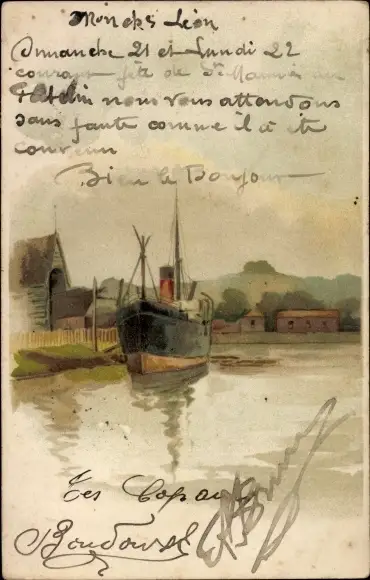 Mon ché Léon
Dimanche 21 et Lundi 22
courant fête de St Maurice au
nous vous attendons
sans faute comme il a été
convenu
Bien le Bonjour
Tes Copains